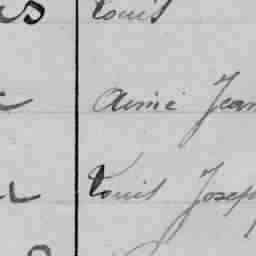 Louis
Aimé Jean
Louis Joseph